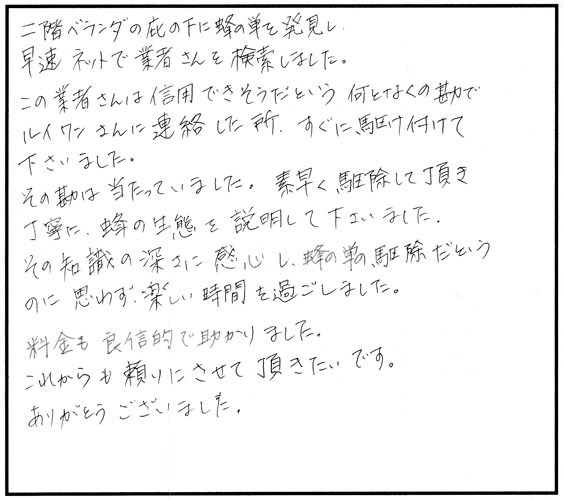 二階ベランダの庇の下に蜂の巣を発見し、
早速ネットで業者さんを検索しました。
この業者さんは信用できそうだという何となくの勘で
ルイワンさんに連絡した所、すぐに駆け付けて
下さいました。
その勘は当たっていました。素早く駆除して頂き
丁寧に、蜂の生態を説明して下さいました。
その知識の深さに感心し、蜂の巣の駆除だという
のに思わず楽しい時間を過ごしました。
料金も良信的で助かりました。
これからも頼りにさせて頂きたいです。
ありがとうございました。